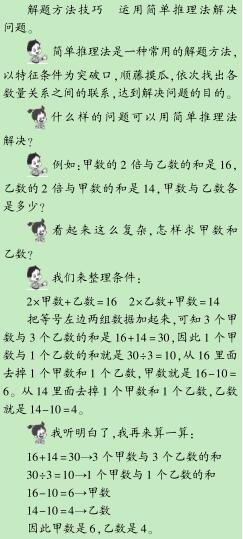 解题方法技巧 运用简单推理法解决
问题。
简单推理法是一种常用的解题方法,
以特征条件为突破口,顺藤摸瓜,依次找出各
数量关系之间的联系,达到解决问题的目的。
什么样的问题可以用简单推理法
解决?
例如:甲数的2倍与乙数的和是16,
乙数的2倍与甲数的和是14,甲数与乙数各
是多少?
看起来这么复杂,怎样求甲数和
乙数?
我们来整理条件:
2×甲数+乙数=16 2×乙数+甲数=14
把等号左边两组数据加起来,可知3个甲
数与3个乙数的和是16+14=30,因此1个甲
数与1个乙数的和就是30÷3=10,从16里面
去掉1个甲数和1个乙数,甲数就是16-10=
6。从14里面去掉1个甲数和1个乙数,乙数
就是14-10=4。
我听明白了,我再来算一算:
16+14=30→3个甲数与3个乙数的和
30÷3=10→1个甲数与1个乙数的和
16-10=6→甲数
14-10=4→乙数
因此甲数是6,乙数是4。